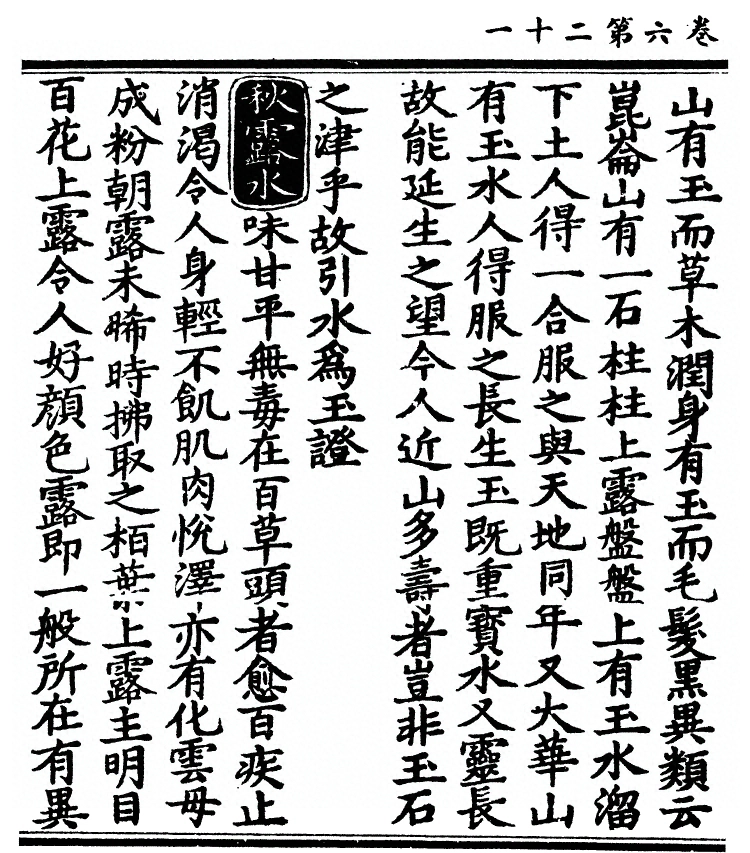 卷六第二十一
山有玉而草木潤身有玉而毛髮黑異類云
崑崙山有一石柱柱上露盤盤上有玉水溜
下土人得一合服之與天地同年又大華山
有玉水人得服之長生玉既重寶水又靈長
故能延生之望今人近山多壽者豈非玉石
之津乎故引水爲玉證
秋露水味甘平無毒在百草頭者愈百疾止
消渴令人身輕不飢肌肉悅澤亦有化雲母
成粉朝露未晞時拂取之栢葉上露主明目
百花上露令人好顏色露即一般所在有異